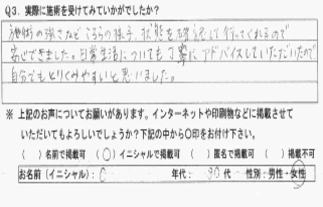 Q3. 実際に施術を受けてみていかがでしたか？
施術の強さなどこちらの様子、状態を確認して行ってくれるので
安心できました。日常生活についても丁寧にアドバイスしていただいたので
自分でもとりくみやすいと思いました。
※ 上記のお声についてお願いがあります。インターネットや印刷物などに掲載させて
いただいてもよろしいでしょうか？下記の中から〇印をお付け下さい。
（　）名前で掲載可　（〇）イニシャルで掲載可　（　）匿名で掲載可　（　）掲載不可
お名前（イニシャル）：　年代：30代　性別：男性・女性